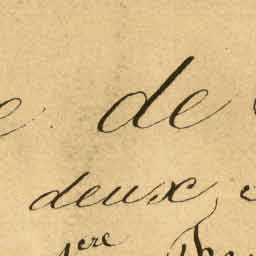 e de
deux,
1ère